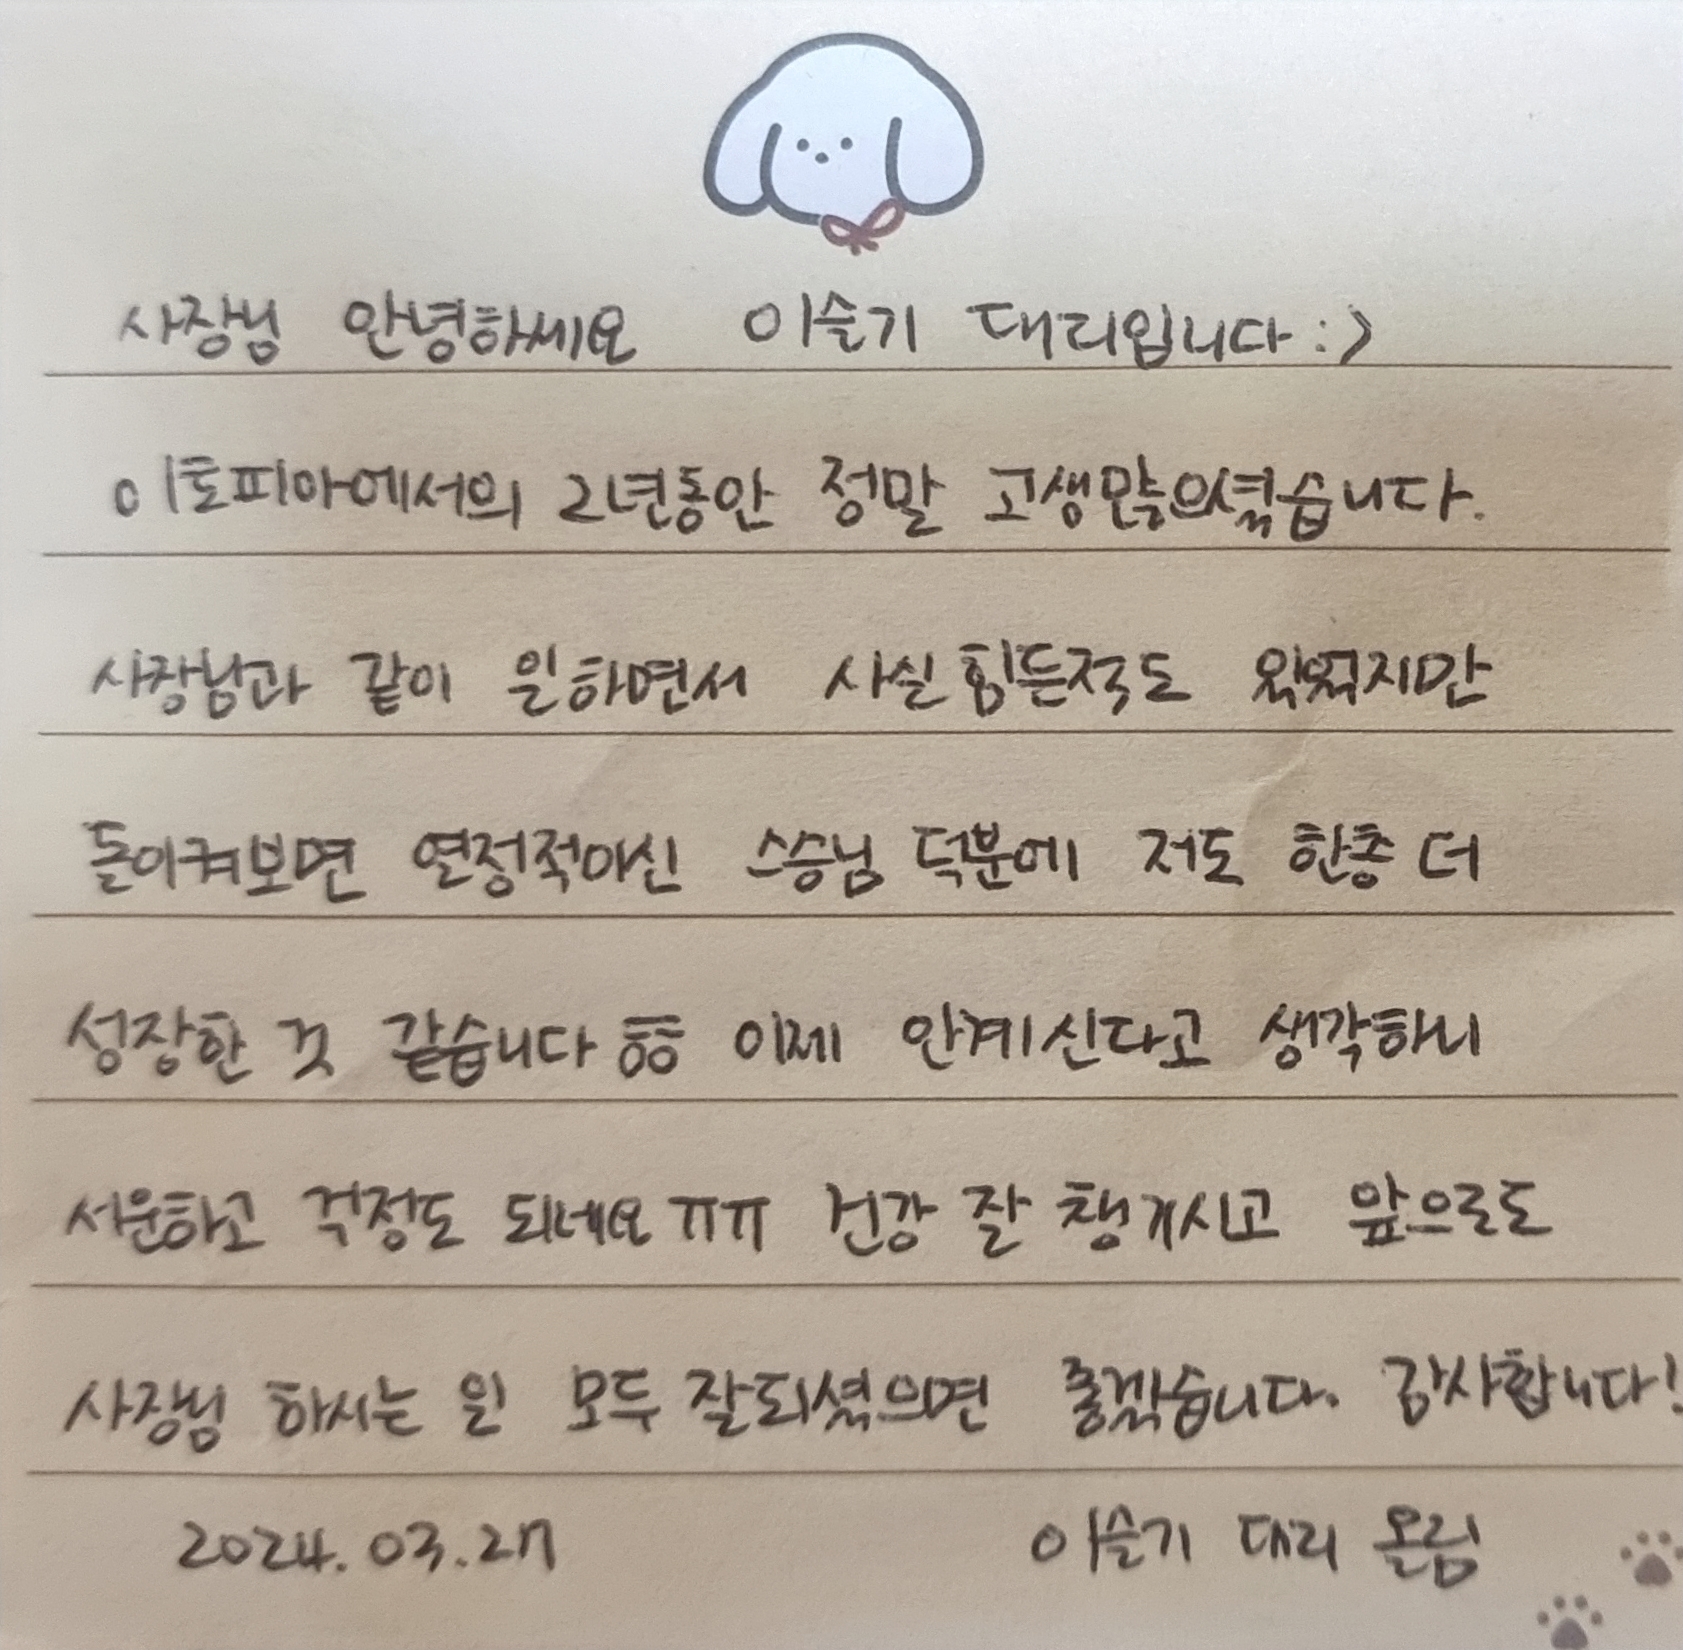 사장님 안녕하세요 이슬기 대리입니다 :>
이토피아에서의 2년동안 정말 고생많으셨습니다.
사장님과 같이 일하면서 사실 힘든적도 있었지만
돌이켜보면 열정적이신 스승님 덕분에 저도 한층 더
성장한 것 같습니다 ㅎㅎ 이제 안계신다고 생각하니
서운하고 걱정도 되네요 ㅠㅠ 건강 잘 챙기시고 앞으로도
사장님 하시는 일 모두 잘되셨으면 좋겠습니다. 감사합니다!
2024. 03. 27 이슬기 대리 올림